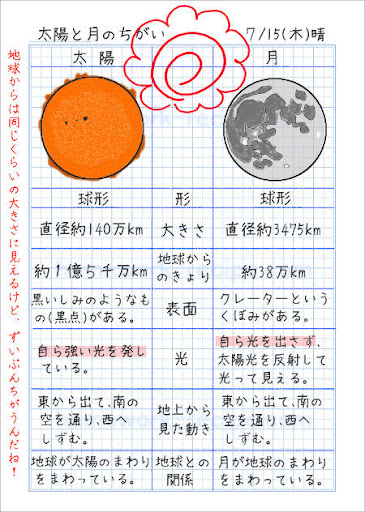 太陽と月のちがい 7/15(木)晴
太陽 月
球形 形 球形
直径約140万km 大きさ 直径約3475km
約1億5千万km 地球から
のきょり 約38万km
黒いしみのようなも
の(黒点)がある。
表面
クレーターという
くぼみがある。
自ら強い光を発し
ている。
光
自ら光を出さず、
太陽光を反射して
光って見える。
東から出て、南の
空を通り、西へ
しずむ。
地上から
見た動き
東から出て、南の
空を通り、西へ
しずむ。
地球が太陽のまわり
をまわっている。
地球との
関係
月が地球のまわり
をまわっている。
地球からは同じくらいの大きさに見えるけど、ずいぶんちがうんだね!